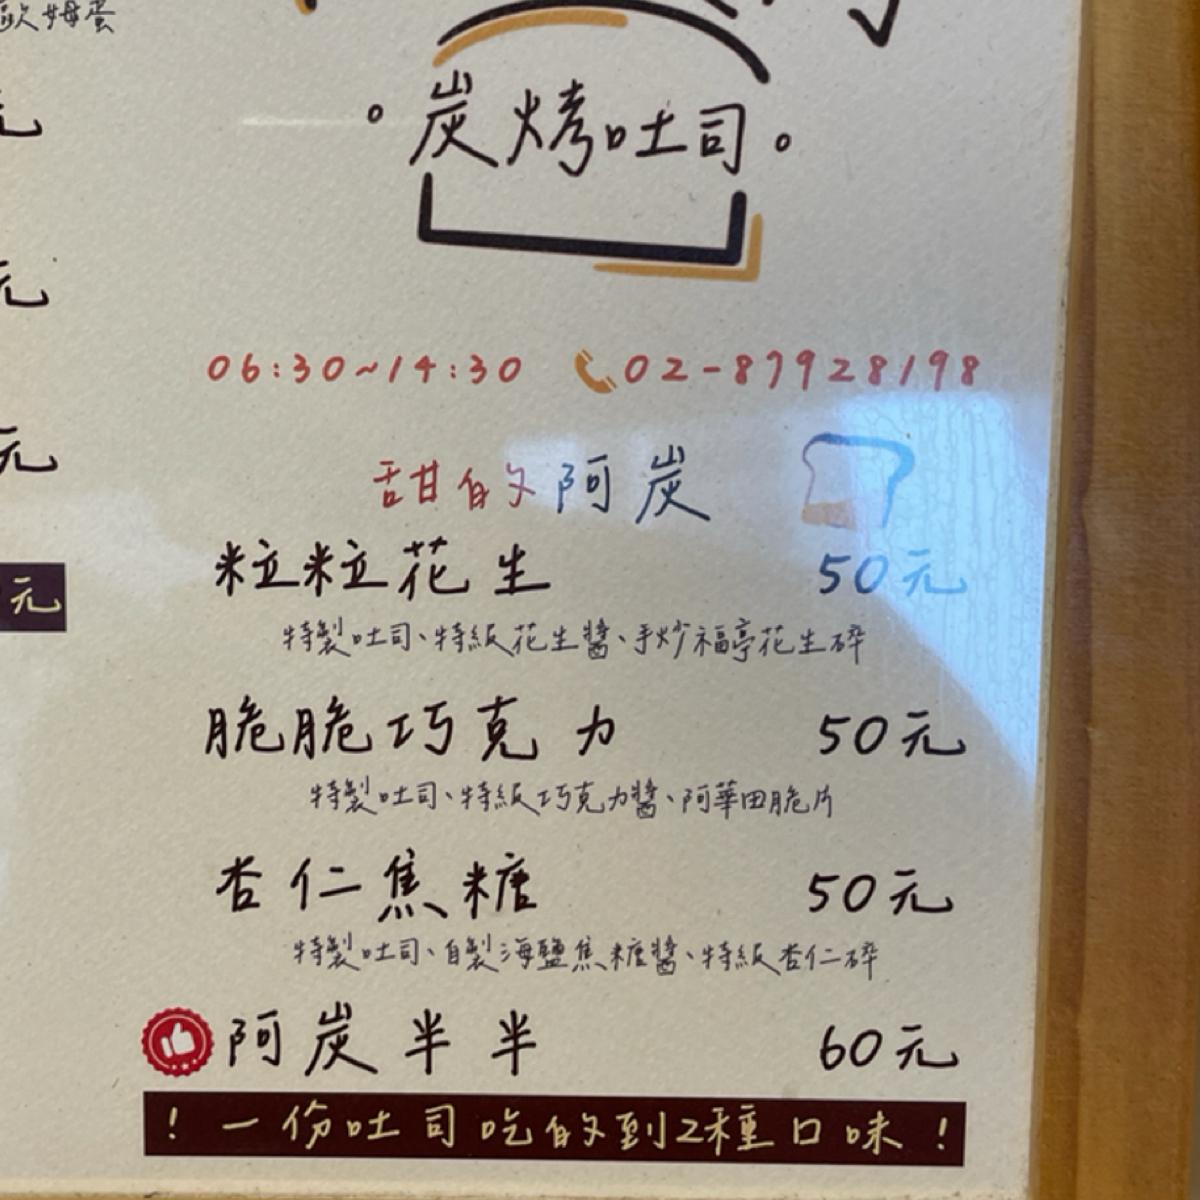 歐姆蛋
元
元
元
元
炭烤吐司
06:30~14:30 02-87928198
甜的阿炭
粒粒花生 50元
特製吐司、特級花生醬、手炒福亭花生碎
脆脆巧克力 50元
特製吐司、特級巧克力醬、阿華田脆片
杏仁焦糖 50元
特製吐司、自製海鹽焦糖醬、特級杏仁碎
阿炭半半 60元
！一份吐司吃的到2種口味！